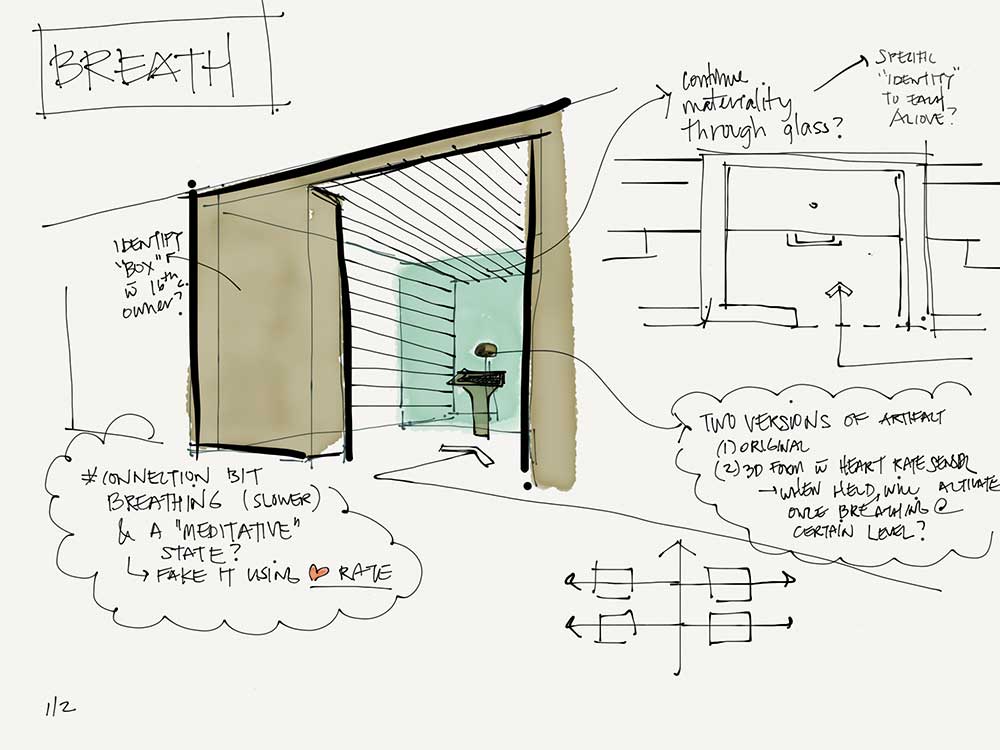 BREATH
continue
materiality
through glass?
SPECIFIC
"IDENTITY"
TO EACH
ALCOVE?
IDENTIFY
"BOX"
w̄ 16th c.
owner?
TWO VERSIONS OF ARTIFACT
(1) ORIGINAL
(2) 3D FORM w̄ HEART RATE SENSOR
→ WHEN HELD, WILL ACTIVATE
ONCE BREATHING @
CERTAIN LEVEL?
# CONNECTION BIT
BREATHING (SLOWER)
& A "MEDITATIVE"
STATE?
↳ FAKE IT USING ♥ RATE
1/2